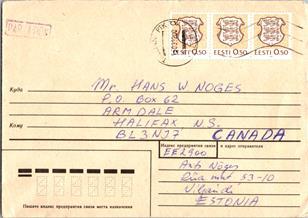 PAR AVION
EESTI 0.50 EESTI 0.50 EESTI 0.50
Куда
Mr. HANS W NOGES
P.O. BOX 62
ARMDALE
Кому
HALIFAX N.S.
BL3NJ7 CANADA
Индекс предприятия связи и адрес отправителя
EE2900
Nõges
53-10
Viljandi
ESTONIA
Индекс предприятия связи места назначения